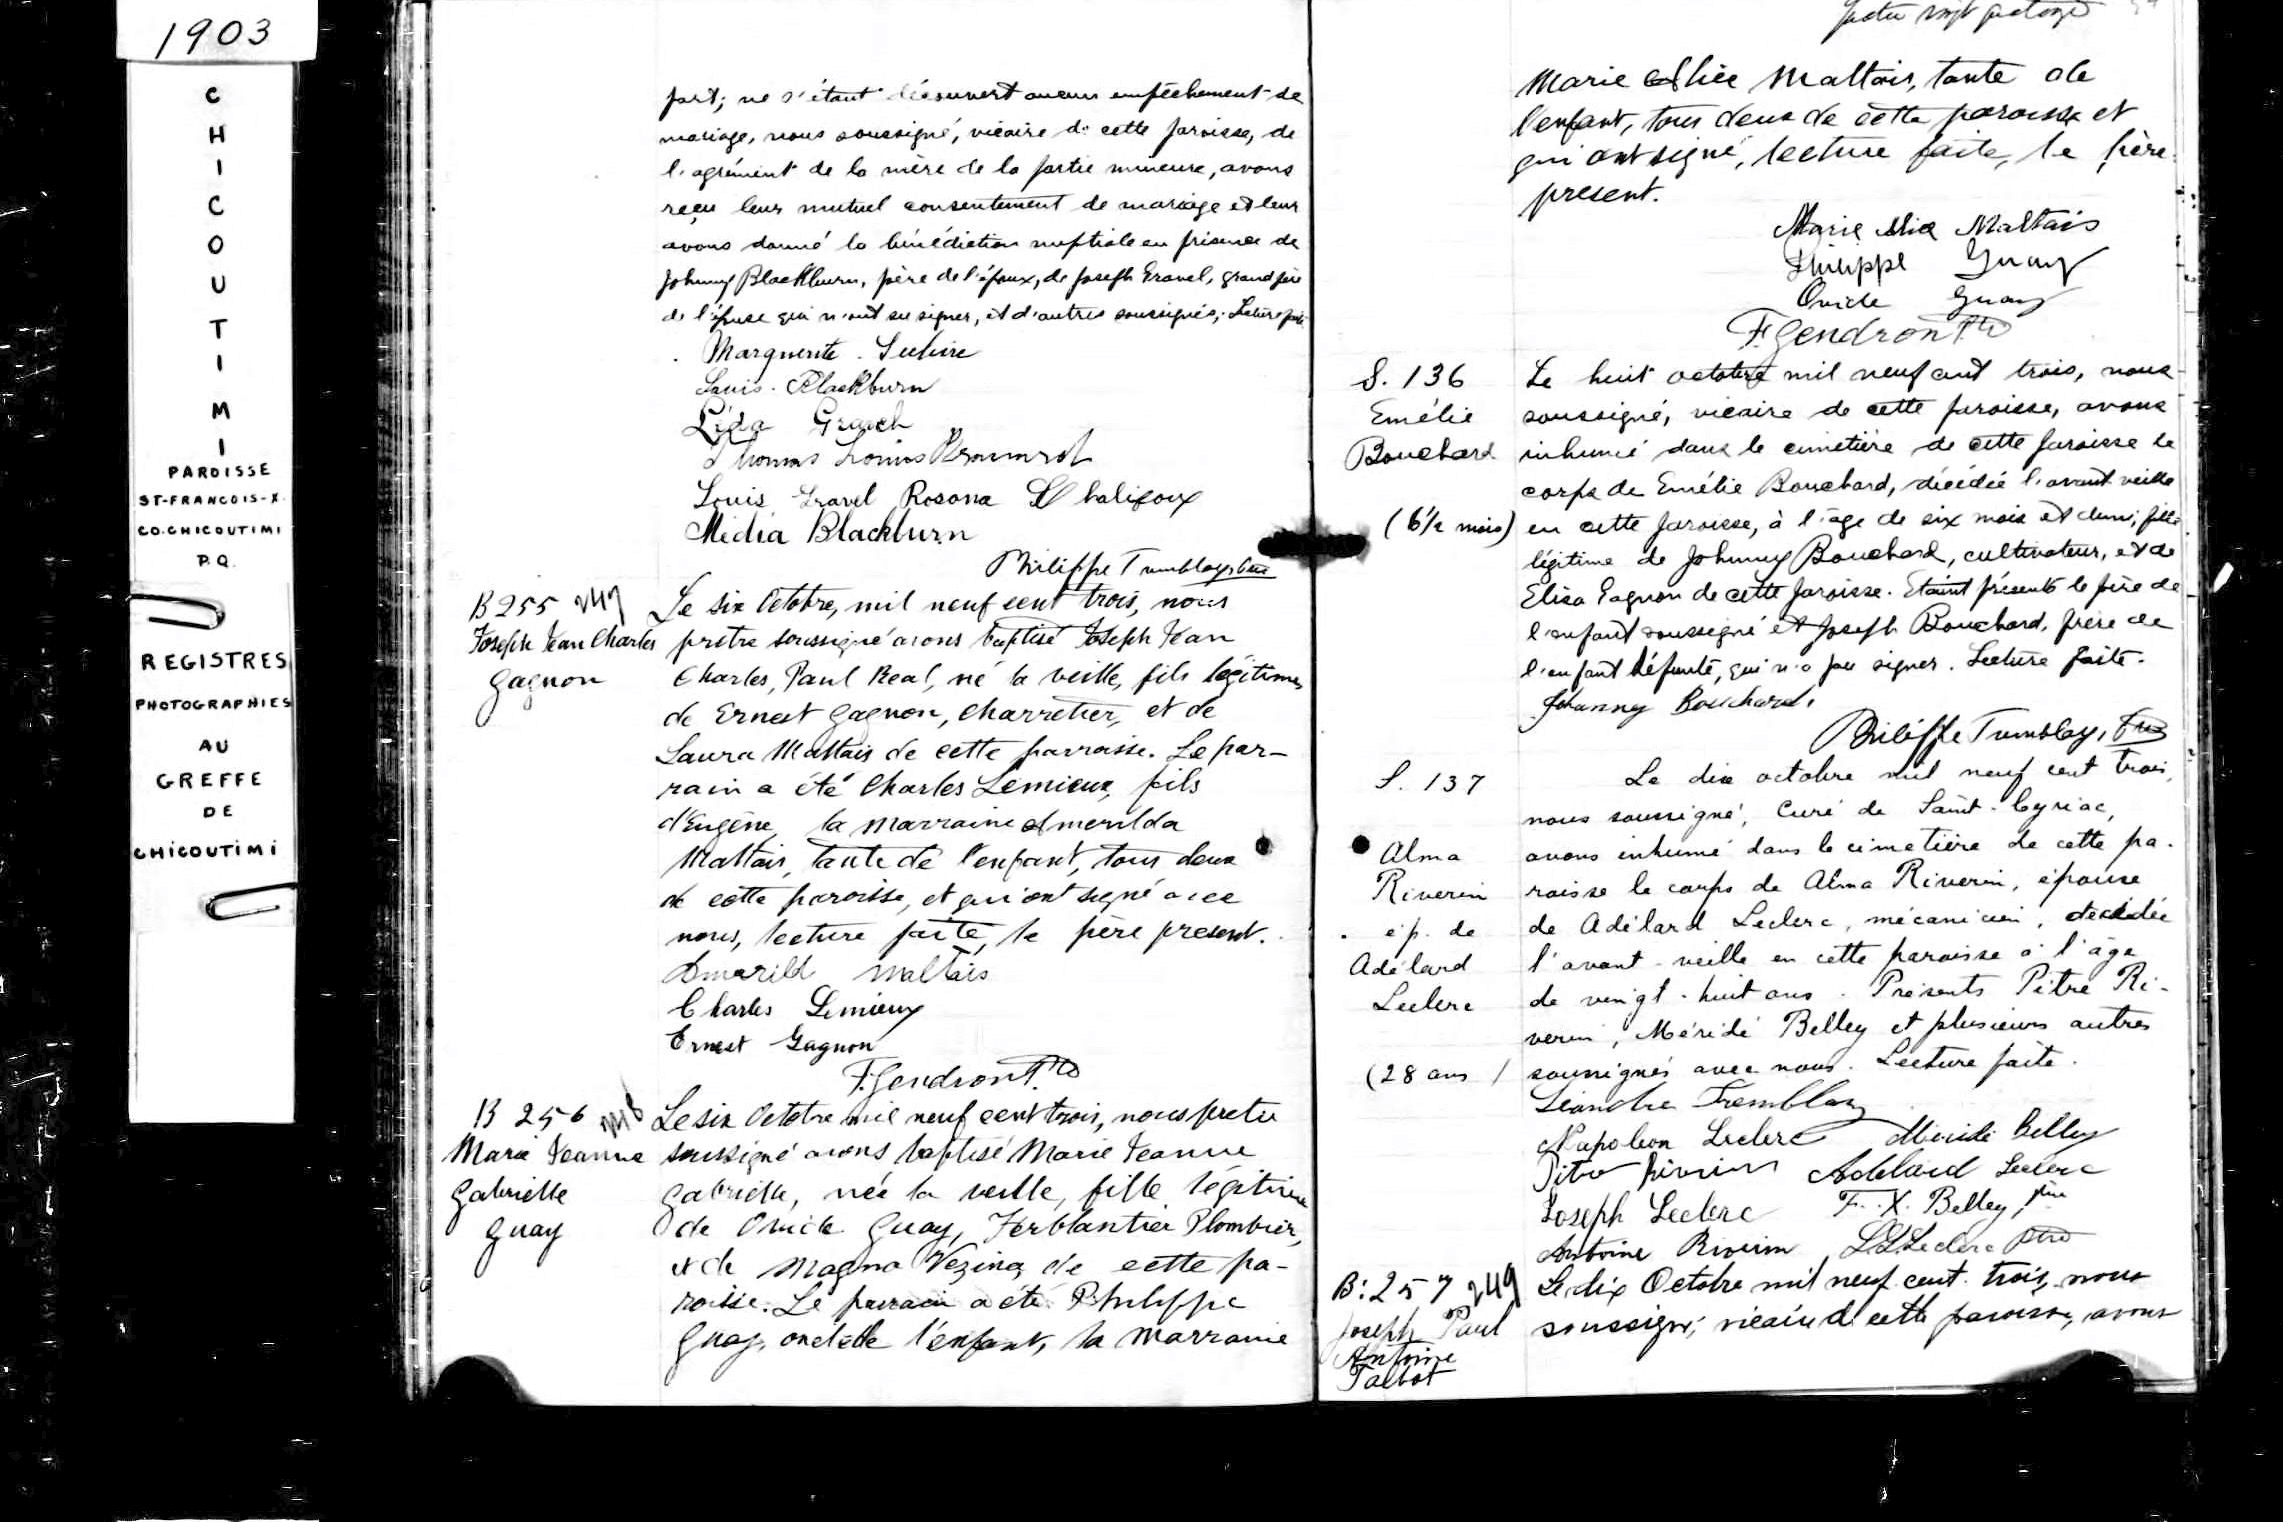 1903
CHICOUTIMI
PAROISSE
ST-FRANCOIS-X.
CO.CHICOUTIMI
P.Q.
REGISTRES
PHOTOGRAPHIES
AU
GREFFE
DE
CHICOUTIMI
part; ne s'étant découvert aucun empêchement de
mariage, nous soussigné, vicaire de cette paroisse, de
l'agrément de la mère de la partie mineure, avons
reçu leur mutuel consentement de mariage et leur
avons donné la bénédiction nuptiale en présence de
Johnny Blackburn, père de l'époux, de Joseph Gravel, grand père
de l'épouse qui n'ont su signer, et d'autres soussignés; Lecture faite
Marguerite
Louis Blackburn
Léda
Thomas
Louis Gravel Rosona
Médià Blackburn
Philippe Tremblay, Ptre
B 255 247
Joseph Jean Charles
Gagnon
Le six Octobre, mil neuf cent trois, nous
pretre soussigné avons baptisé Joseph Jean
Charles, Paul Real, né la veille, fils légitime
de Ernest Gagnon, charretier, et de
Laura Maltais de cette parroisse. Le par-
rain a été Charles Lemieux, fils
d'Eugène, la marraine Amerilda
Maltais, tante de l'enfant, tous deux
de cette paroisse, et qui ont signé avec
nous, lecture faite, le père present.
Amarild Maltais
Charles Lemieux
Ernest Gagnon
F. Gendron Ptre
B 256 248
Marie Jeanne
Gabrielle
Guay
Le six Octobre mil neuf cent trois, nous pretre
soussigné avons baptisé Marie Jeanne
Gabrielle, née la veille, fille légitime
de Ovide Guay, Ferblantier Plombier,
et de Magna Vezina, de cette pa-
roisse. Le parrain a été Philippe
Guay, oncle de l'enfant, la marraine
Marie Alice Maltais, tante de
l'enfant, tous deux de cette paroisse et
qui ont signé, lecture faite, le père
present.
Marie Alice Maltais
Philippe Guay
Ovide Guay
F. Gendron Ptre
S. 136
Emélie
Bouchard
(6½ mois)
Le huit octobre mil neuf cent trois, nous
soussigné, vicaire de cette paroisse, avons
inhumé dans le cimetière de cette paroisse le
corps de Emélie Bouchard, décédée l'avant veille
en cette paroisse, à l'âge de six mois et demi, fille
légitime de Johnny Bouchard, cultivateur, et de
Elisa Gagnon de cette paroisse. Etaient présents le père de
l'enfant soussigné et Joseph Bouchard, frère de
l'enfant défunte, qui n'a pu signer. Lecture faite.
Johnny Bouchard,
Philippe Tremblay, Ptre
S. 137
Alma
Riverin
ép. de
Adélard
Leclerc
(28 ans)
Le dix octobre mil neuf cent trois,
nous soussigné, Curé de Saint-Cyriac,
avons inhumé dans le cimetière de cette pa-
roisse le corps de Alma Riverin, épouse
de Adélard Leclerc, mécanicien, décédée
l'avant-veille en cette paroisse à l'âge
de vingt-huit ans. Présents Pitre Ri-
verin, Méridé Belley et plusieurs autres
soussignés avec nous. Lecture faite.
Léandre Tremblay
Napoléon Leclerc Méridé Belley
Pitre Riverin Adélard Leclerc
Joseph Leclerc F.-X. Belley, ptre
Antoine Riverin Leclerc Ptre
B: 257 249
Joseph Paul
Antoine
Talbot
Le dix Octobre mil neuf cent trois, nous
soussigné, vicaire de cette paroisse, avons